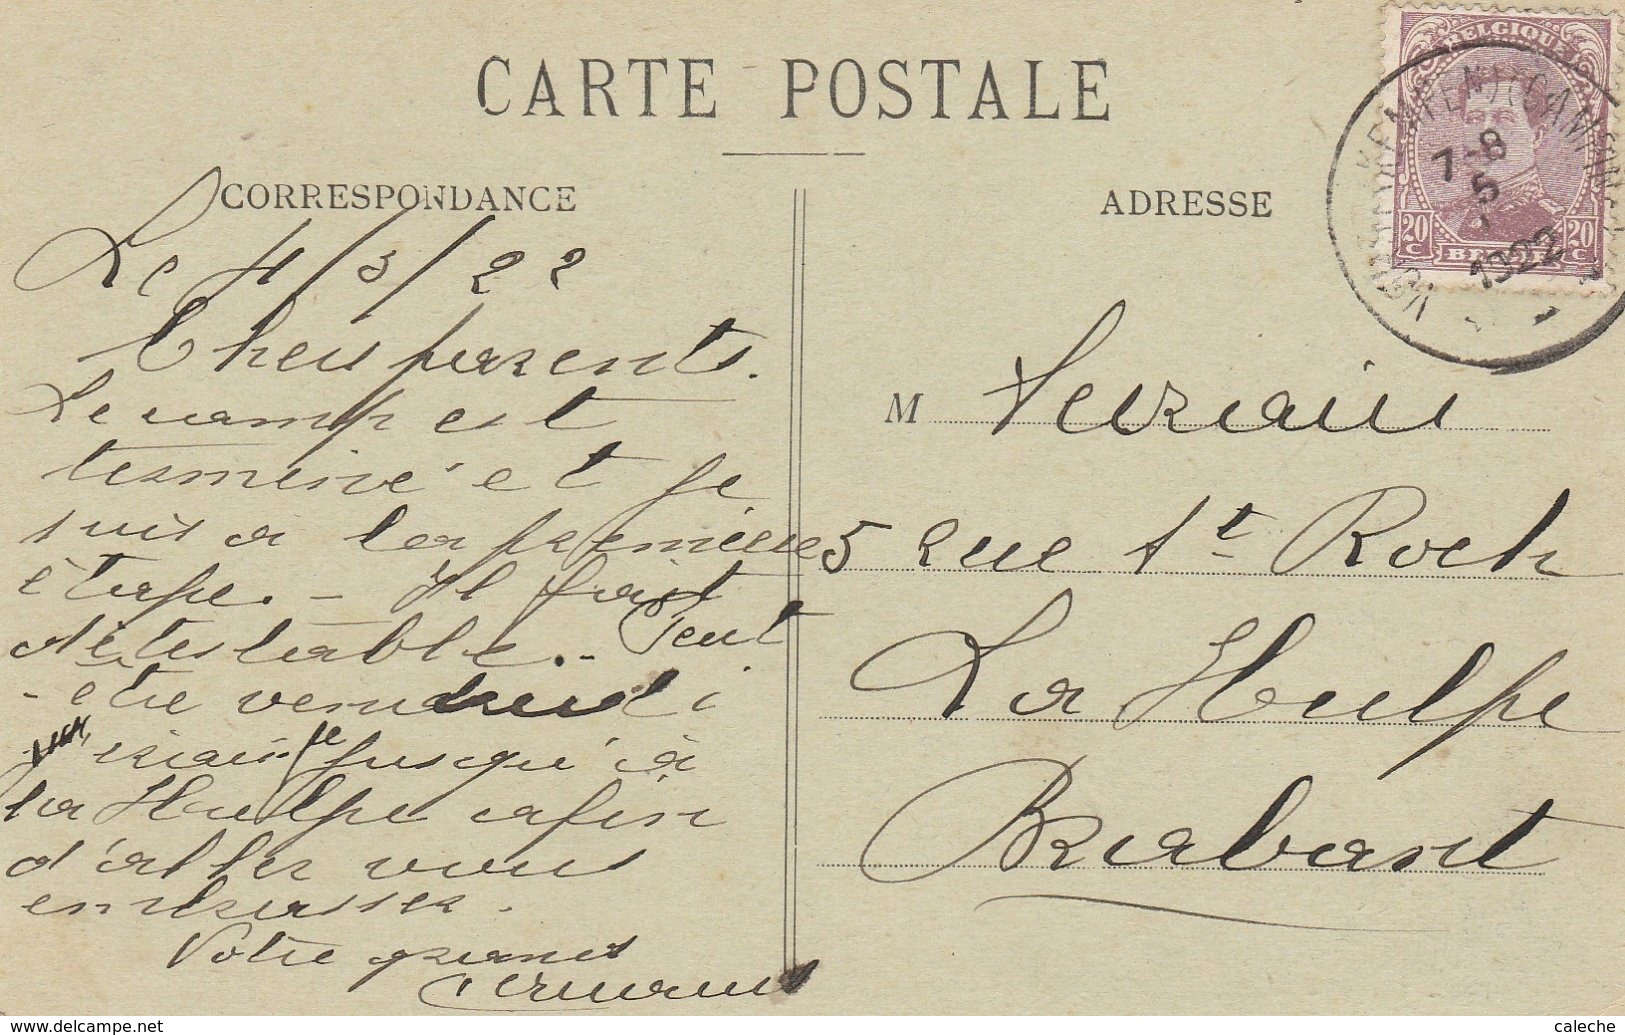 CARTE POSTALE
CORRESPONDANCE
Le 4/3/22
Chers parents.
Le camp est
terminé et je
suis à la première
étape. - Il fait
détestable. - Peut
-être vendredi
irai je jusqu'à
la Hulpe afin
d'aller vous
embrasser.
Votre grand
Fernand
ADRESSE
M
5 Rue St Roch
La Hulpe
Brabant
BELGIQUE
7-8
5
1922
20 C
20 C
www.delcampe.net
caleche